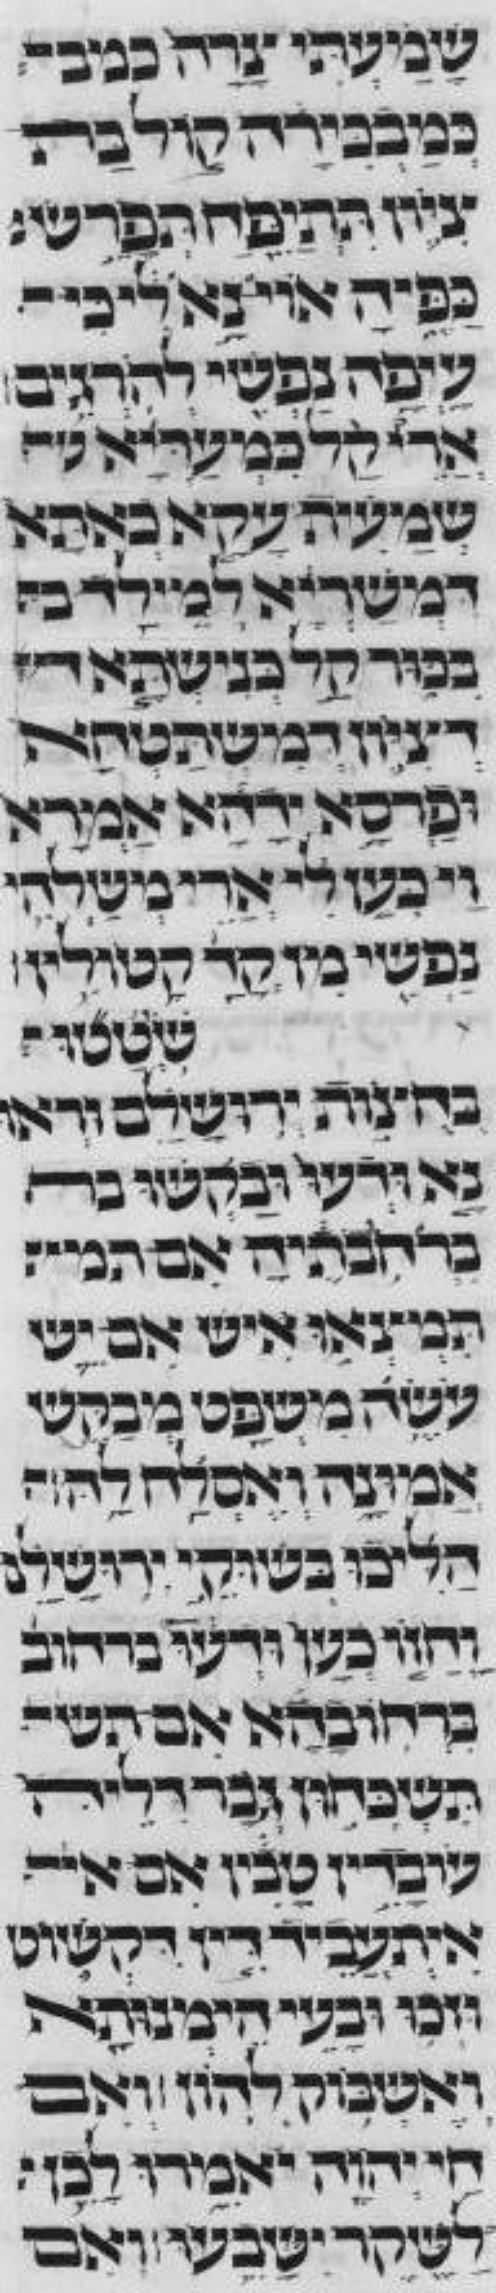 שָׁמַעְתִּי צָרָה כמב
כְּמַבְכִּירָה קוֹל בַּת
צִיּוֹן תִּתְיַפֵּחַ תְּפָרֵשׂ
כַּפֶּיהָ אוֹי נָא לִי כִּי
עָיְפָה נַפְשִׁי לְהֹרְגִים׃
אֲרֵי קָל כִּמְעַדְיָא שׁ
שְׁמַעִית עָקָא כְּאִתָּא
דִּמְשַׁרְיָא לְמֵילַד ב
בִּכּוּר קָל כְּנִישְׁתָּא ד
דְצִיּוֹן דְּמִשְׁתַּטְחָא
וּפָרְסָא יְדַהָא אָמְרָא
וַי כְּעַן לִי אֲרֵי מְשַׁלְהֲיָ
נַפְשִׁי מִן קֳדָ קָטוֹלִין׃
שׁוֹטְטוּ
בְּחֻצוֹת יְרוּשָׁלִַם וּרְאוּ
נָא וּדְעוּ וּבַקְשׁוּ בר
בִרְחֹבֹתֶיהָ אִם תמ
תִּמְצְאוּ אִישׁ אִם יֵשׁ
עֹשֶׂה מִשְׁפָּט מְבַקֵּשׁ
אֱמוּנָה וְאֶסְלַח לָהּ׃
הַלִּיכוּ בְּשׁוּקֵי יְרוּשְׁלֵם
וַחֲזוֹ כְעַן וּדְעוּ ברחוב
בִּרְחוֹבַהָא אִם תש
תַּשְׁכְּחוּן גְּבַר דְּלֵיהּ
עוֹבָדִין טָבִין אִם אי
אִיתְעֲבֵיד דִּין דִּקְשׁוֹט
וזכו וּבָעֵי הֵימָנוּתָא
וְאֶשְׁבּוֹק לְהוֹן׃ וְאִם
חַי יְהוָה יֹאמֵרוּ לָכֵן
לַשֶּׁקֶר יִשָּׁבֵעוּ׃ וְאִם